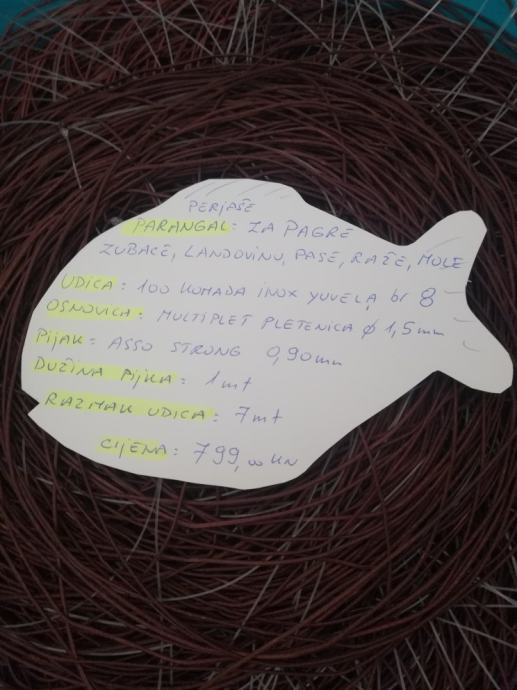 PERJAŠE
PARANGAL: ZA PAGRE
ZUBACE, LANDOVINU, PASE, RAŽE, MOLE
UDICA: 100 KOMADA INOX YUVELA br 8
OSNOVICA: MULTIPLET PLETENICA φ 1,5mm
PIJAK: ASSO STRONG 0,90mm
DUŽINA PIJKA: 1mt
RAZMAK UDICA: 7mt
CIJENA: 799,00 KN